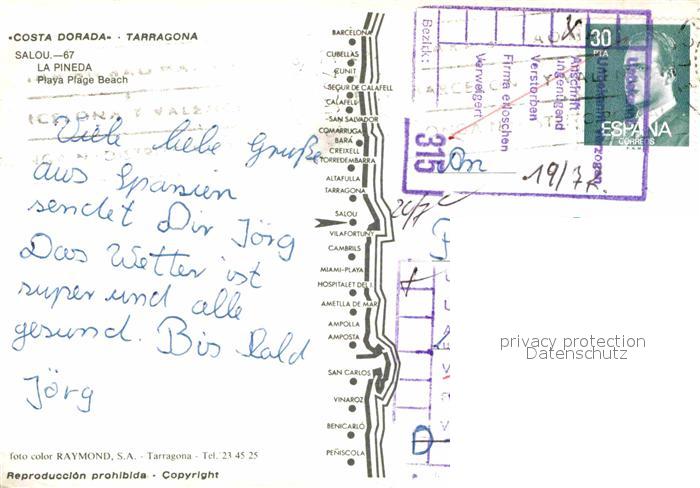 «COSTA DORADA» · TARRAGONA
SALOU.—67
LA PINEDA
Playa Plage Beach
Viele liebe Grüße
aus Spanien
sendet Dir Jörg
Das Wetter ist
super und alle
gesund. Bis Bald
Jörg
foto color RAYMOND, S.A. - Tarragona - Tel. 23 45 25
Reproducción prohibida - Copyright
BARCELONA
CUBELLAS
CUNIT
SEGUR DE CALAFELL
CALAFELL
SAN SALVADOR
COMARRUGA
BARÁ
CREIXELL
TORREDEMBARRA
ALTAFULLA
TARRAGONA
SALOU
VILAFORTUNY
CAMBRILS
MIAMI-PLAYA
HOSPITALET DEL I.
AMETLLA DE MAR
AMPOLLA
AMPOSTA
SAN CARLOS
VINAROZ
BENICARLÓ
PEÑISCOLA
Bezirk:
Verweigert
Firma erloschen
Verstorben
ungenügend
Anschrift
verzogen
315
An
19/7
30
PTA
ESPAÑA
CORREOS
D
privacy protection
Datenschutz